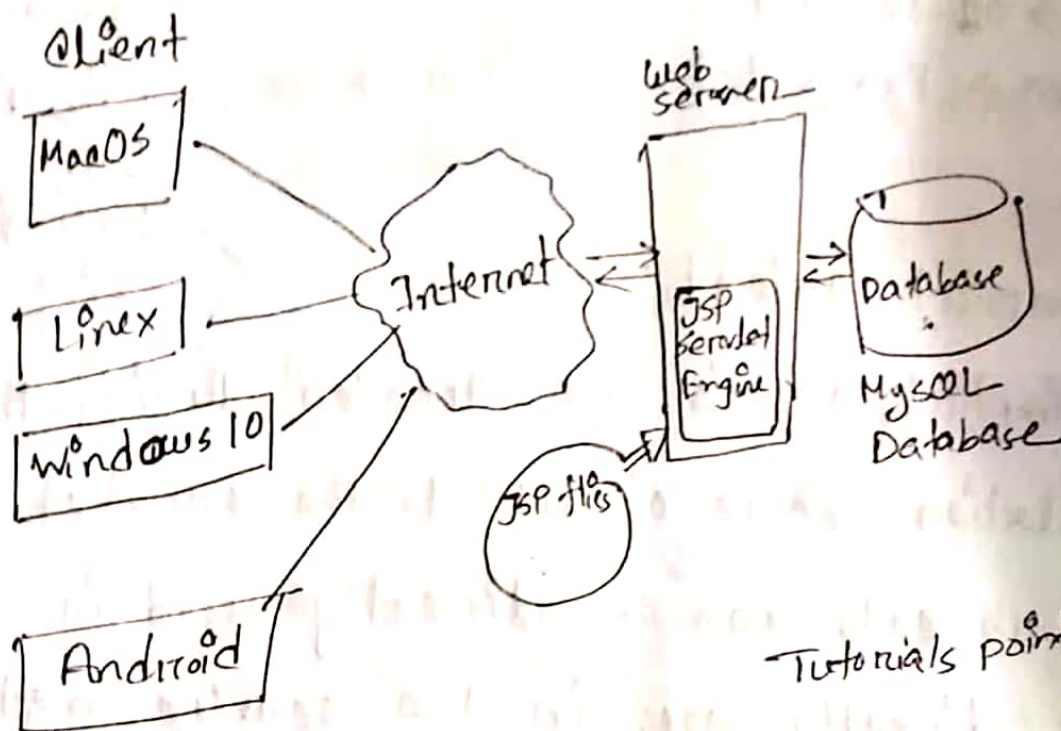 Client
MacOS
Linex
Windows 10
Android
Internet
Web
server
JSP
Servlet
Engine
JSP files
Database
MysQL
Database
Tutorials point